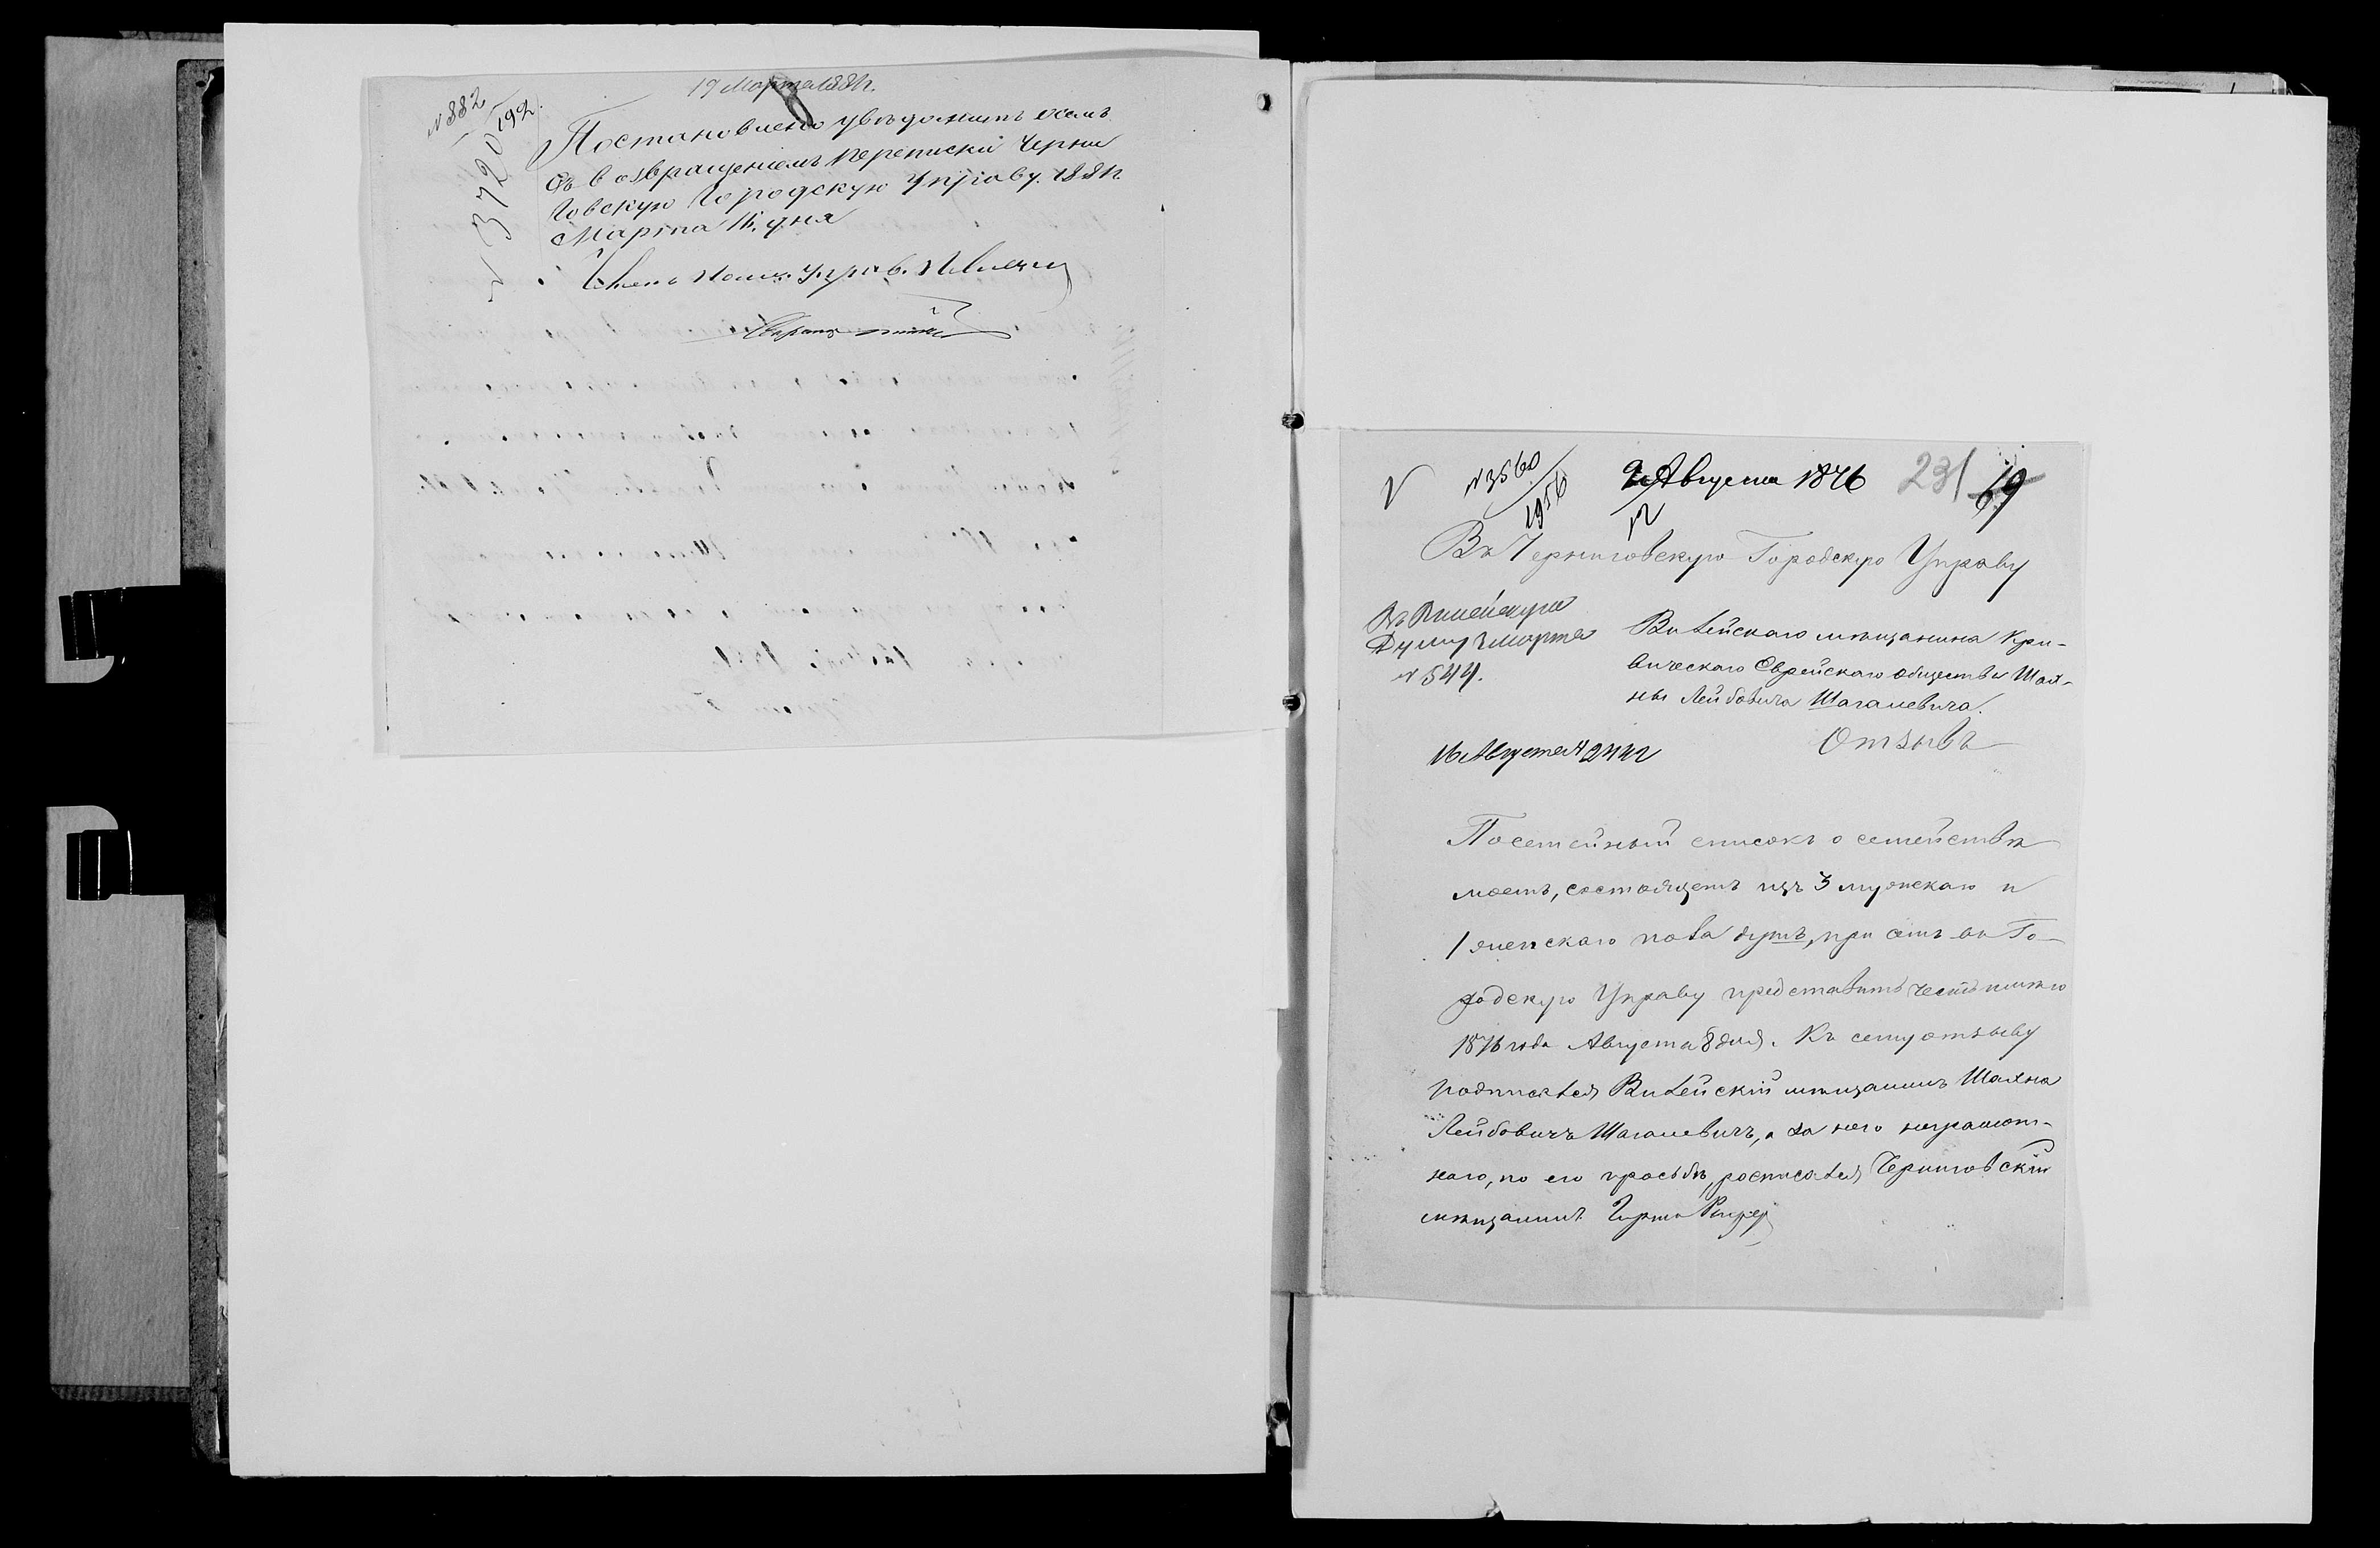 19 Марта 1881 г.
№ 882
192
3720
Постановлено увѣдомить о семъ
съ возвращеніемъ переписки Черни
говскую Городскую Управу. 1881 г.
Марта 16 дня
Членъ
№ 3560
1956
9 Августа 1876
23/
69
Въ Черниговскую Городскую Управу
Въ Вилейскую
Думу 7 марта
№ 544.
Вилейскаго мѣщанина Кри-
вическаго Еврейскаго общества Шах-
ны Лейбовича Шагалевича.
16 Августа № 2442
Отзывъ
Посемейный списокъ о семействѣ
моемъ, состоящемъ изъ 3 мужскаго и
1 женскаго пола душъ, при семъ въ Го-
родскую Управу представить честь имѣю
1876 года Августа 8 дня. Къ сему отзыву
подписался Вилейскій мѣщанинъ Шахна
Лейбовичъ Шагалевичъ, а за него неграмот-
наго, по его просьбѣ, росписался Черниговскій
мѣщанинъ